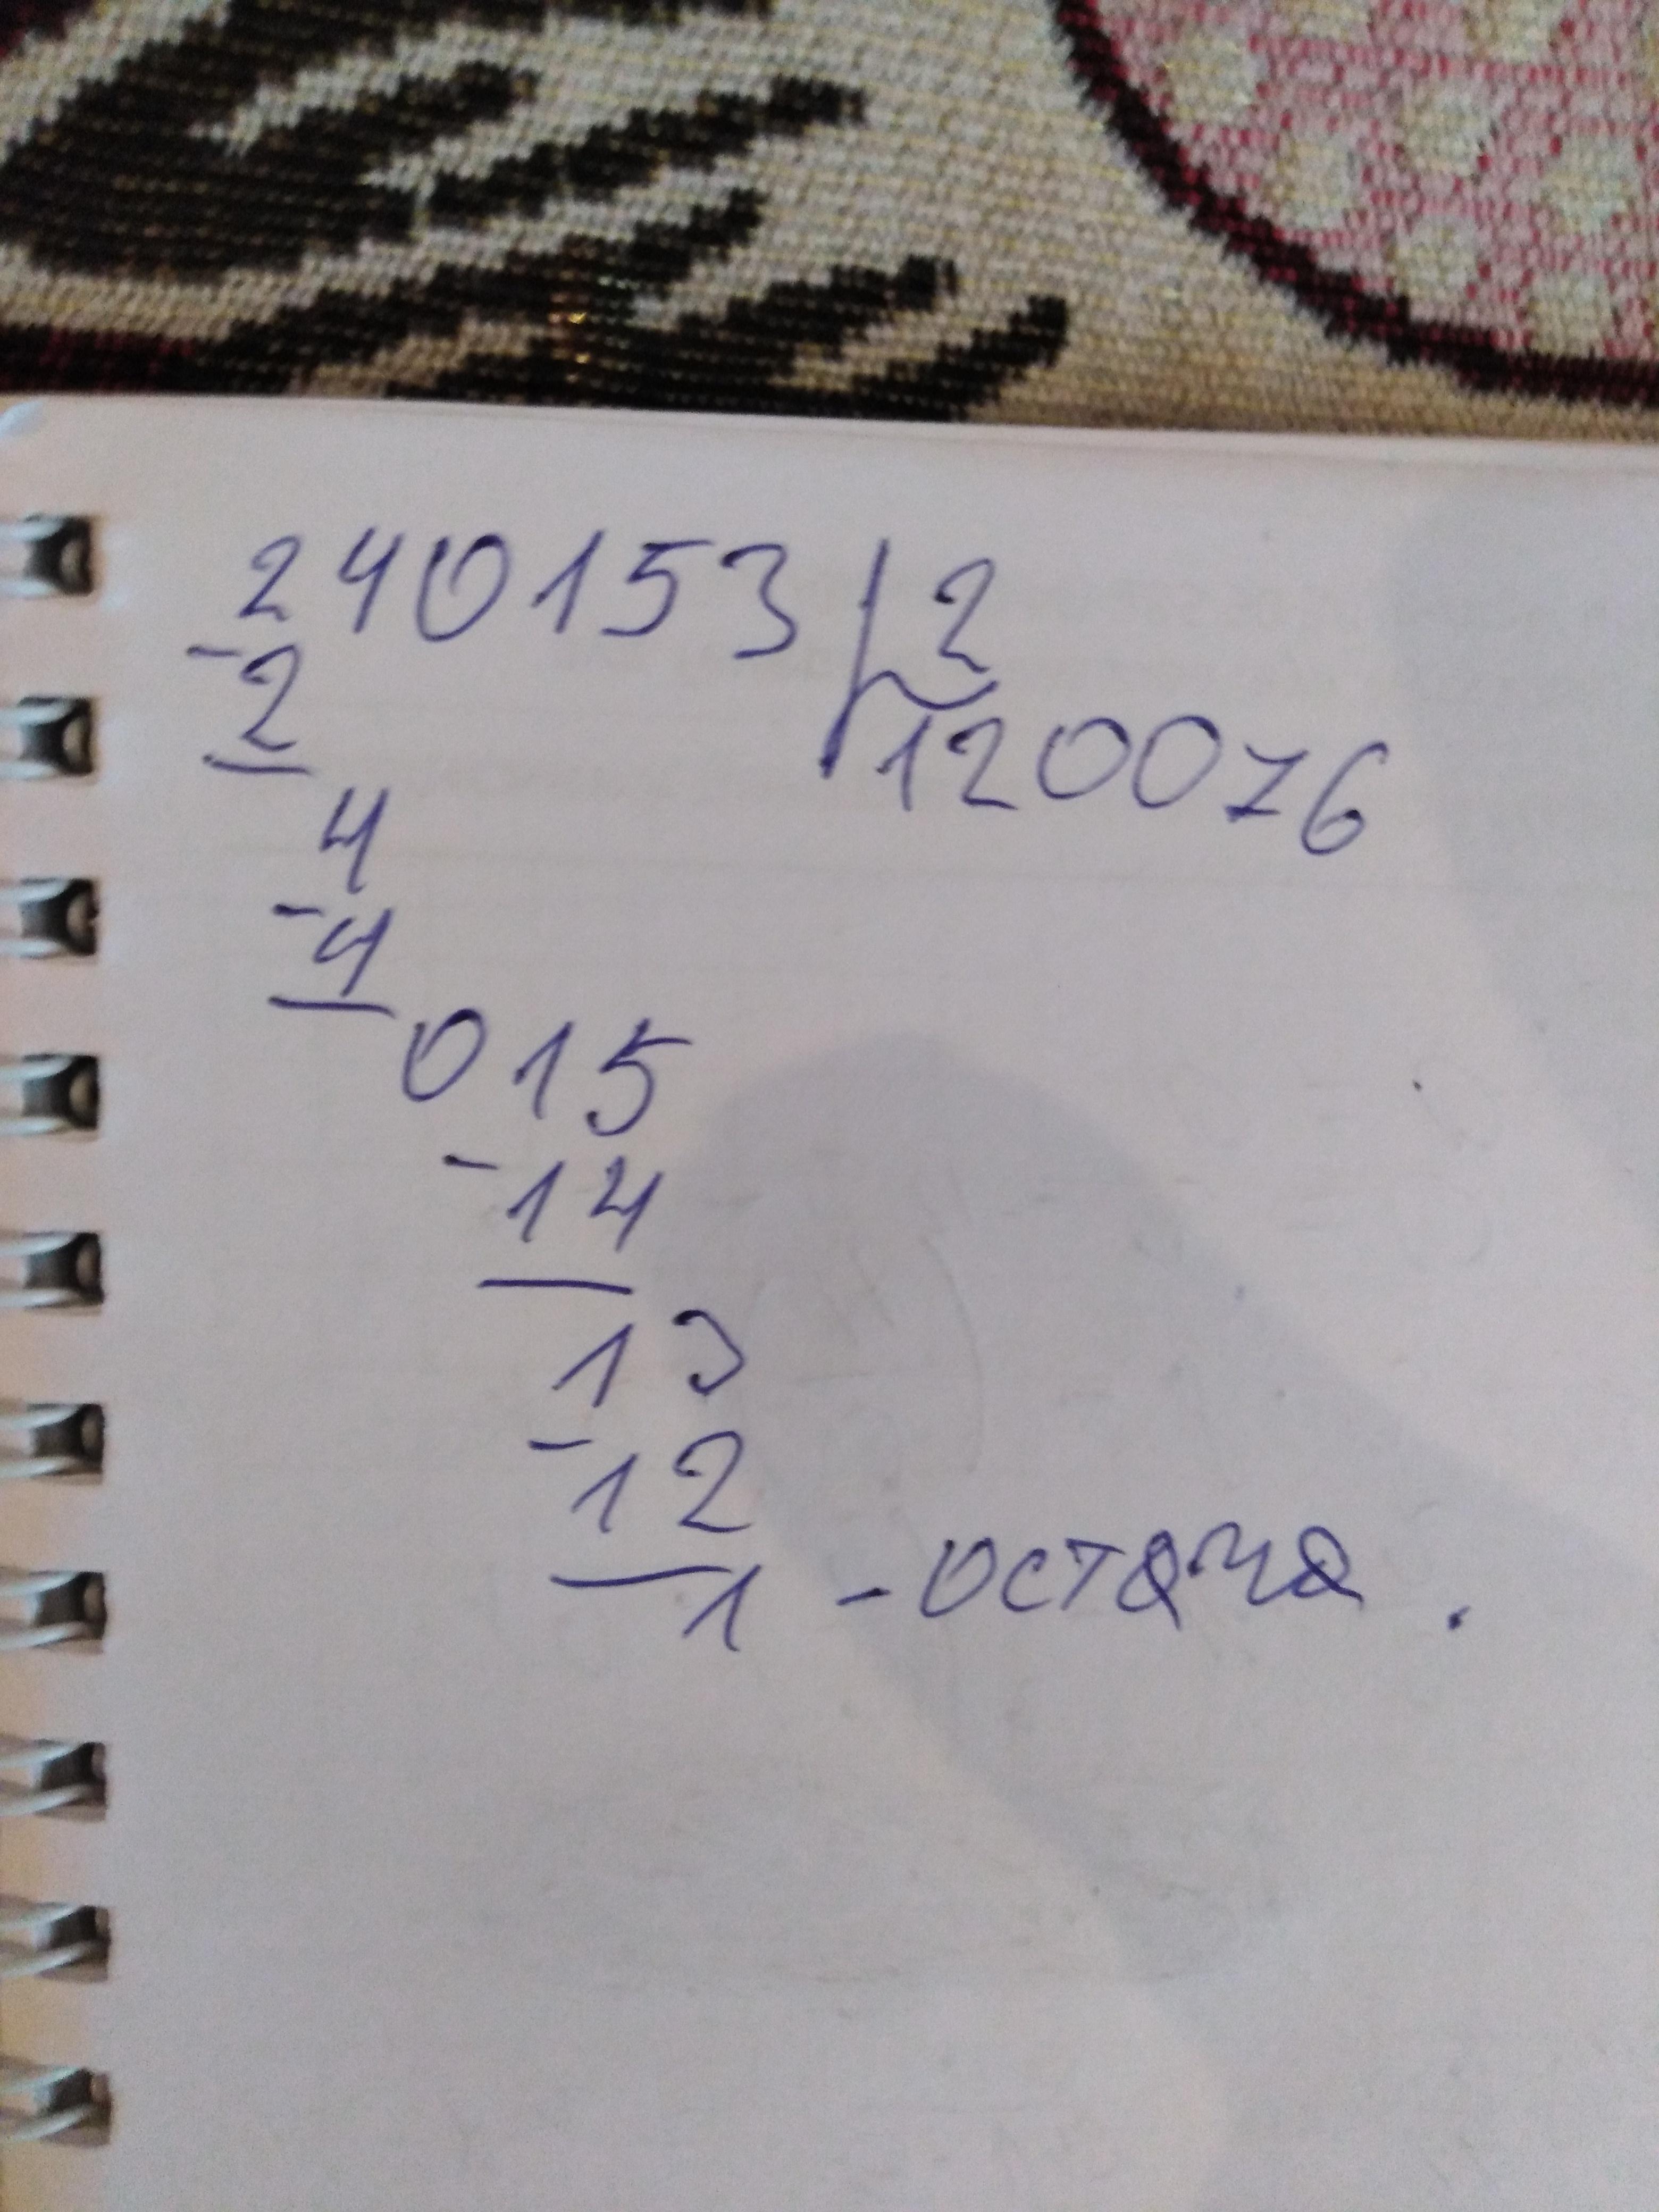 240153 2
-2 120076
4
-4
015
-14
13
-12
1 - остача.